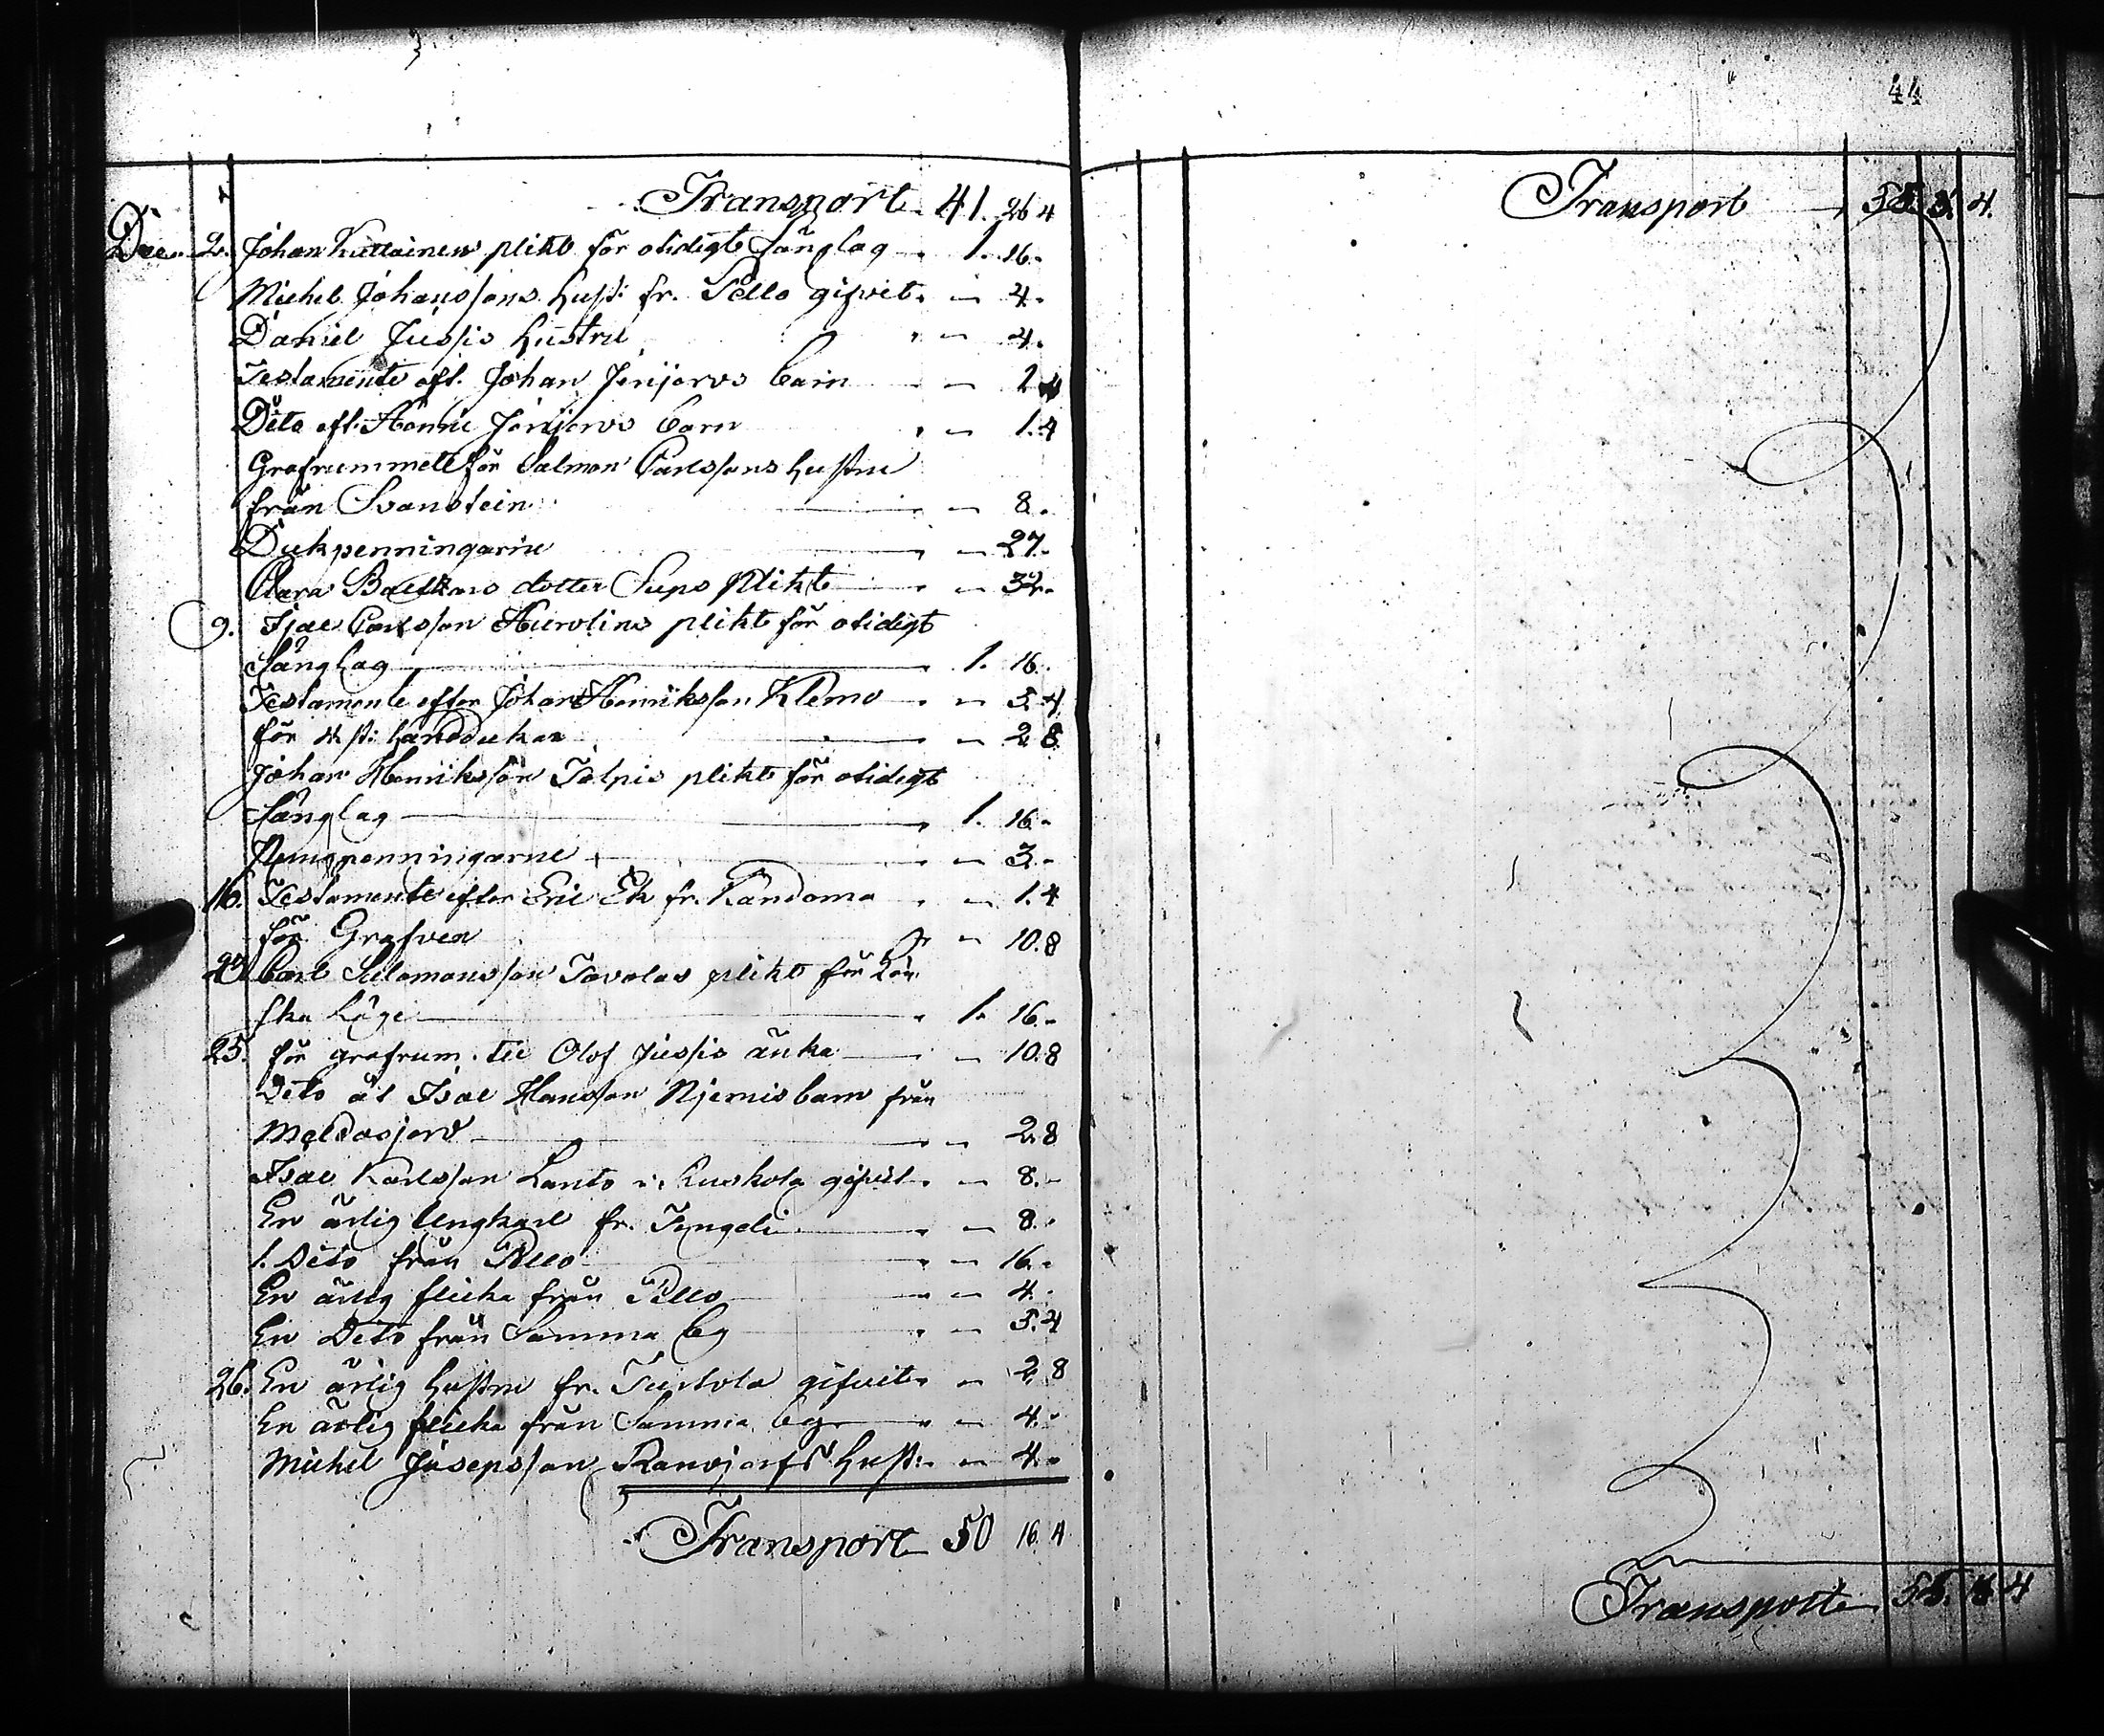 Transport 41. 26 4
Dec. 2. Johan Kuttainen plikt för otidigt Sänglag 1. 16.
Michel Johanssons Hust: fr. Pello gifvit 4.
Daniel Jussis hustru 4.
Testamente eft. Johan Jerijervs barn 2
Dito eft. Jerijervs barn 1.4
Grafrummet för Salmon Carlssons hustru
från Svanstein 8.
Dukpenningarne 27.
Clara dotter plikt 32.
9. Isac Carlsson plikt för otidigt
Sänglag 1. 16.
Testamente efter Johan Henriksson Klemo 5.4
för st: handdukar 2 8
Johan Henriksson Talpis plikt för otidigt
Sänglag 1. 16.
penningarne 3.
16. Testamente efter Eric Ek fr. Kandoma 1.4
för Grafven 10.8
Carl Salomonsson Tavolas plikt för Lön
ska Läge 1. 16.
25. för grafrum till Olof Jussis änka 10.8
Dito åt Isac Hansson Njemis barn från
Meldosjerv 2.8
Isac Karlsson Lanto i Ruskola gifvit 8.
En ärlig Ungkarl fr. Tengeli 8.
1. Dito från Pello 16.
En ärlig flicka från Pello 4.
En Dito från Samma by 5.4
26. En ärlig hustru fr. Turtola gifvit 2 8
En ärlig flicka från Samma by 4.
Michel Josepsson Hust: 4.
Transport 50 16. 4
44
Transport 4.
Transport 4